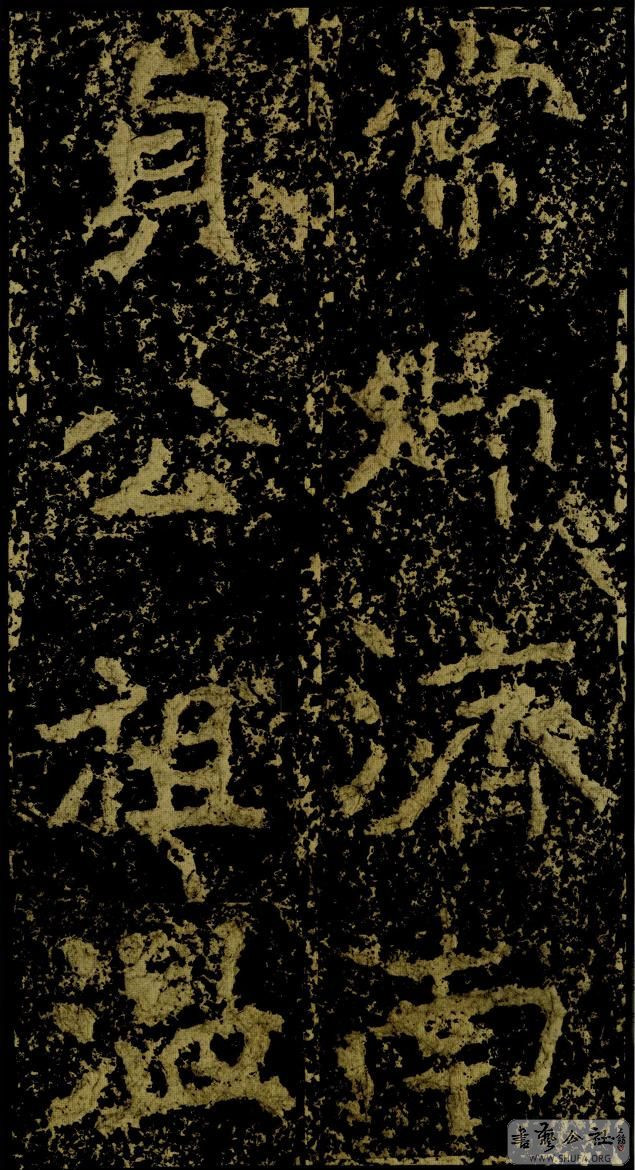 常卿濟南
貞公祖溫
書藝公社
WWW.SHUFA.ORG